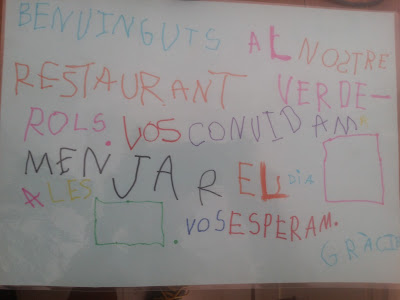 BENVINGUTS AL NOSTRE
RESTAURANT VERDE-
ROLS. VOS CONVIDAM A
MENJAR EL DIA
A LES
. VOS ESPERAM.
GRÀCIE